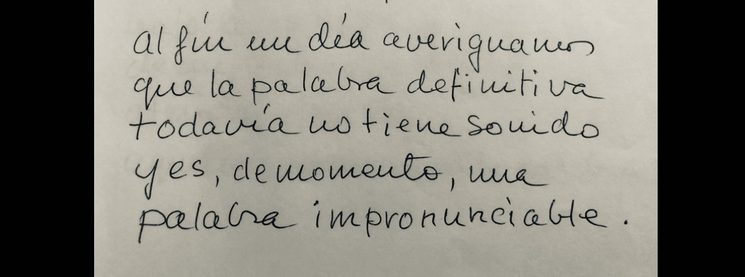 al fin un día averiguamos
que la palabra definitiva
todavía no tiene sonido
y es, de momento, una
palabra impronunciable.